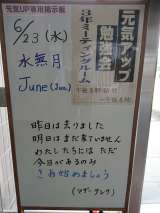 元気UP専用掲示板
6/23(水)
水無月
June(Jun.)
元気アップ
勉強会
3年ミーティングルーム
昨日は去りました
明日はまだ来ていません
わたしたちには ただ
今日があるのみ
さあ始めましょう
(マザーテレサ)